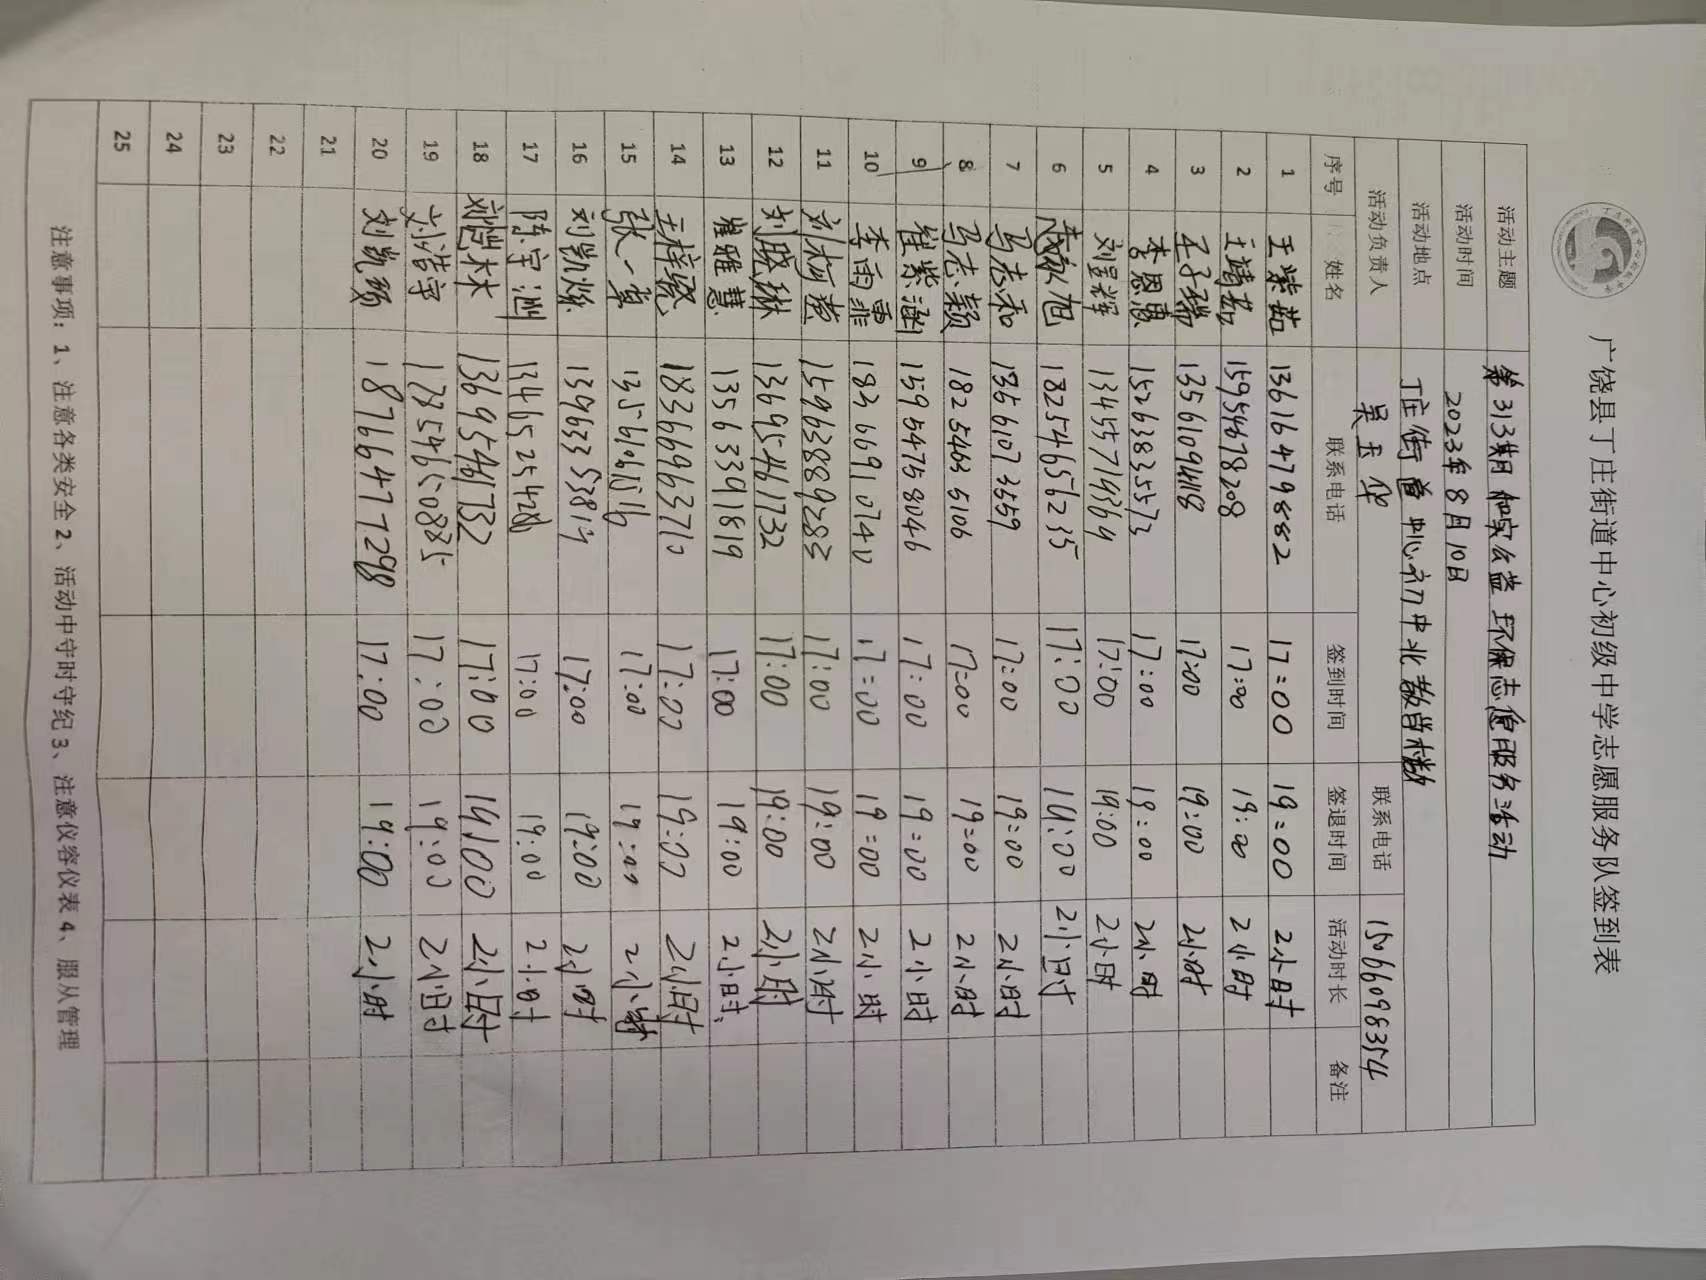 广饶县丁庄街道中心初级中学志愿服务队签到表
活动主题 第313期 和安公益 环保志愿服务活动
活动时间 2023年8月10日
活动地点 丁庄街道中心初中北教学楼
活动负责人 吴玉华 联系电话 15066098354
序号 姓名 联系电话 签到时间 签退时间 活动时长 备注
1 王紫茹 13616479882 17:00 19:00 2小时
2 王靖茹 15954678208 17:00 19:00 2小时
3 王子瑞 17:00 19:00 2小时
4 李恩惠 15263835573 17:00 19:00 2小时
5 刘昱辉 13455719369 17:00 19:00 2小时
6 成永旭 18254656235 17:00 19:00 2小时
7 马志和 13561073559 17:00 19:00 2小时
8 马志颖 18254635106 17:00 19:00 2小时
9 崔紫涵 15954758046 17:00 19:00 2小时
10 李雨霏 18266910740 17:00 19:00 2小时
11 15963889283 17:00 19:00 2小时
12 刘晓琳 13695461732 17:00 19:00 2小时
13 崔雅慧 13563391819 17:00 19:00 2小时
14 王梓毓 18366963710 17:00 19:00 2小时
15 张一卓 17:00 19:00 2小时
16 刘凯焱 13963353814 17:00 19:00 2小时
17 陈宇洲 17:00 19:00 2小时
18 刘恺林 13695461732 17:00 19:00 2小时
19 刘浩宇 17354650885 17:00 19:00 2小时
20 刘凯硕 18766477298 17:00 19:00 2小时
21
22
23
24
25
注意事项：1、注意各类安全 2、活动中守时守纪 3、注意仪容仪表 4、服从管理